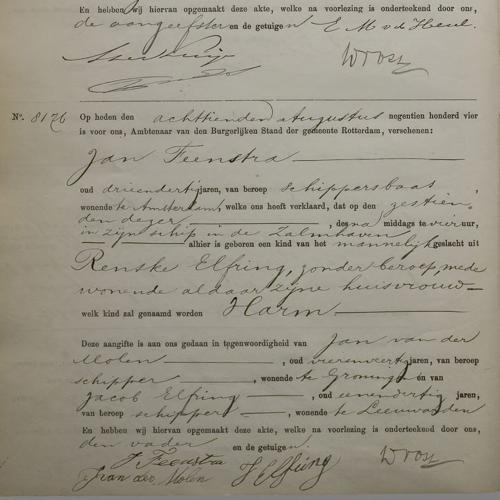 En hebben wij hiervan opgemaakt deze akte, welke na voorlezing is onderteekend door ons,
de aangeefster en de getuigen E M v d Heul.
No. 8176 Op heden den achttienden Augustus negentien honderd vier
is voor ons, Ambtenaar van den Burgerlijken Stand der gemeente Rotterdam, verschenen:
Jan Feenstra
oud drieendertig jaren, van beroep schippersbaas
wonende te Amsterdam, welke ons heeft verklaard, dat op den zestien-
den dezer, des na middags te vier uur,
in zijn schip in de Zalmhaven
alhier is geboren een kind van het mannelijk geslacht uit
Renske Elfring, zonder beroep, mede
wonende aldaar zijne huisvrouw
welk kind zal genaamd worden Harm
Deze aangifte is aan ons gedaan in tegenwoordigheid van Jan van der
Molen, oud vierenveertig jaren, van beroep
schipper, wonende te Groningen en van
Jacob Elfring, oud eenendertig jaren,
van beroep schipper, wonende te Leeuwarden
En hebben wij hiervan opgemaakt deze akte, welke na voorlezing is onderteekend door ons,
den vader en de getuigen.
J Feenstra
J van der Molen J Elfring